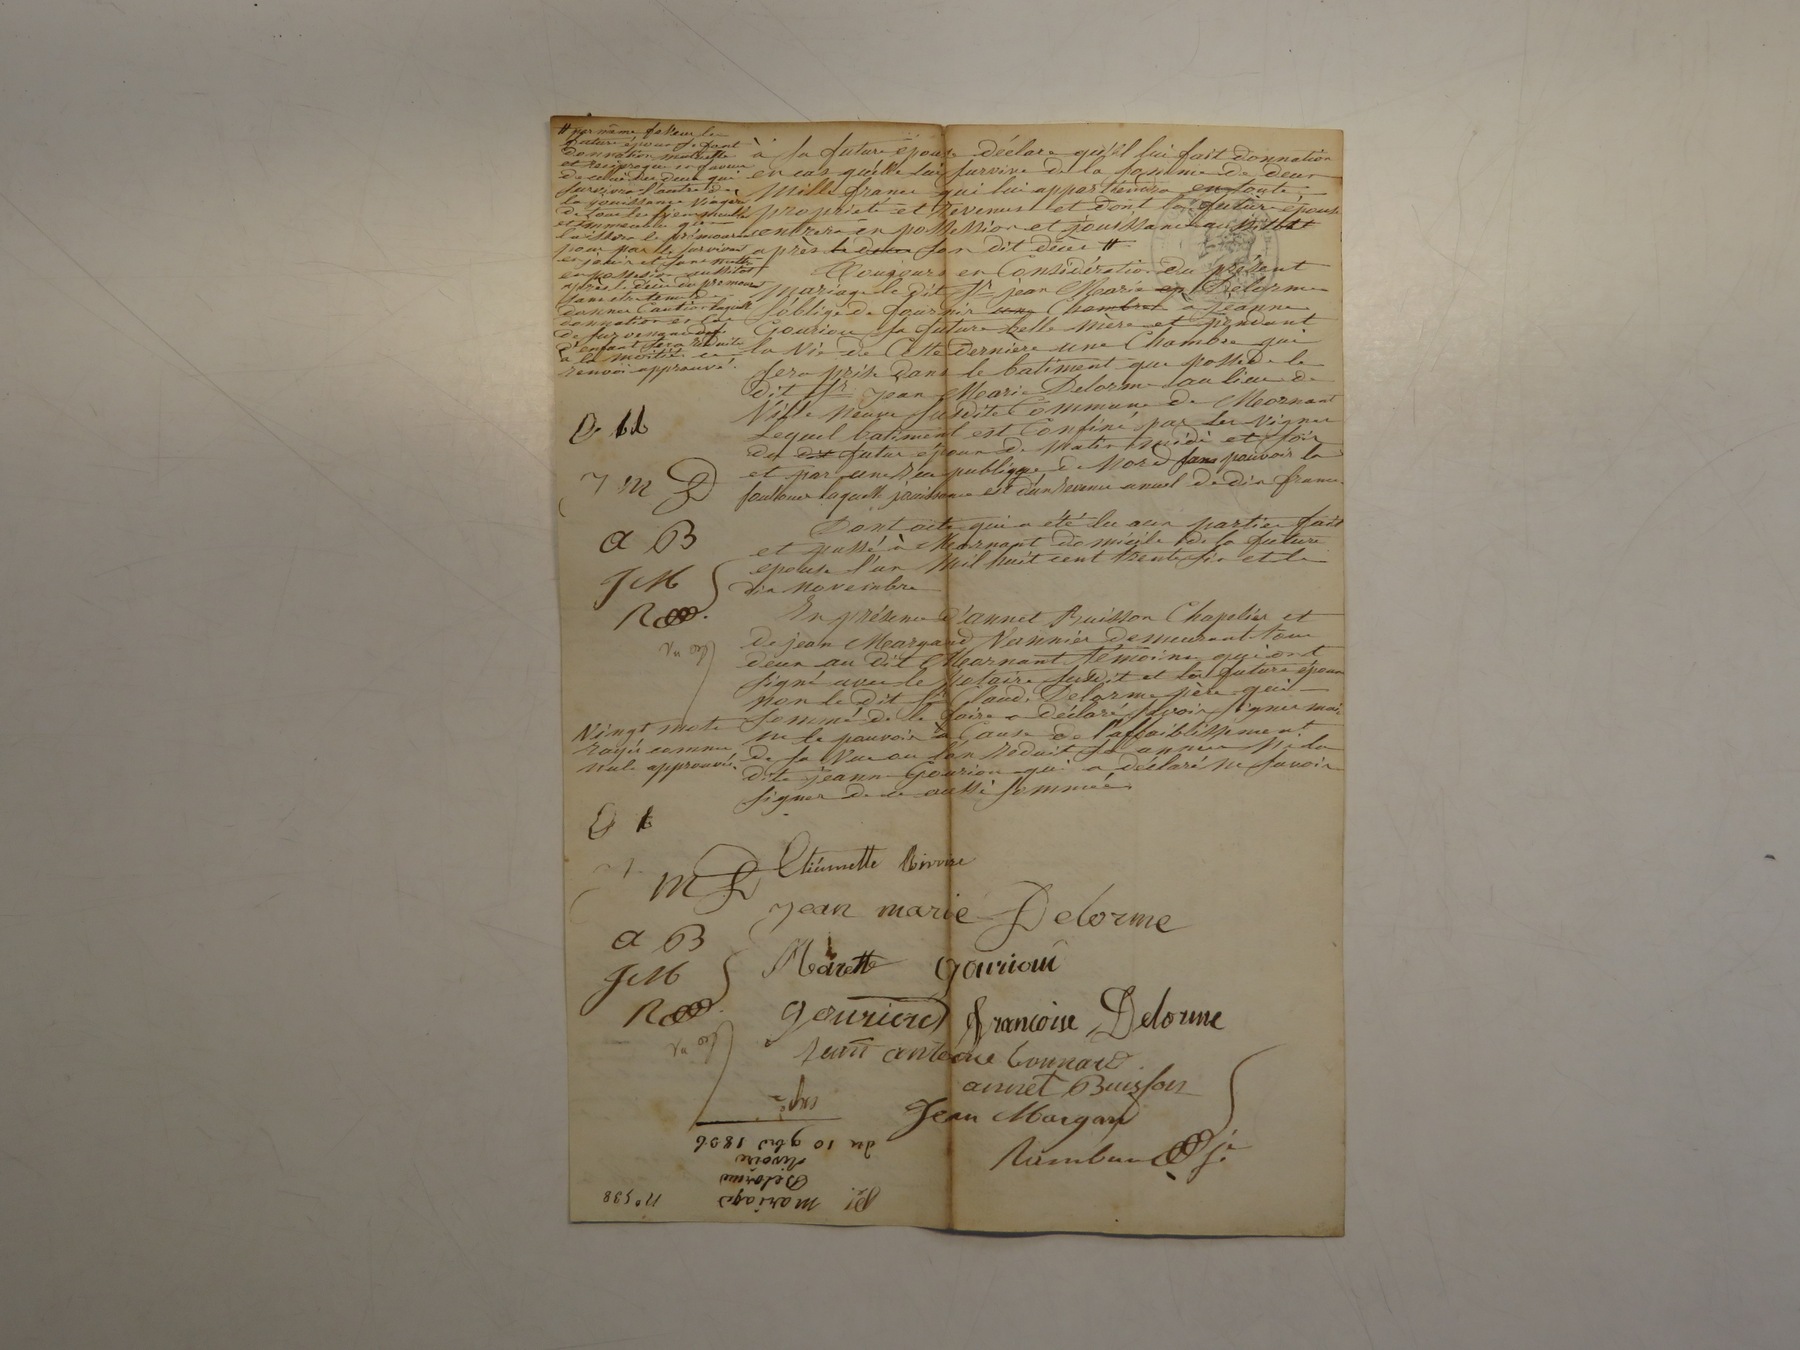 # par même faveur les
futurs époux se font
donnation mutuelle
et réciproque en faveur
de celui des deux qui
survivra l'autre de
la jouissance viagère
de tous les biens meubles
et immeubles que
laissera le prémourant
pour par le survivant
en jouir et sans mettre
en possession aussitot
après le décès du prémourant
sans etre tenu de
donner caution laquelle
donnation en cas
de survenance
d'enfant sera réduite
à la moitié
renvoi approuvé.
J M D
a B
J M
R
à sa future épouse déclare qu'il lui fait donnation
en cas quélle lui survive de la somme de deux
mille francs qui lui appartiendra en toute
propriété et revenus et dont la future épouse
entrera en possession et jouissance aussitot
après le deces son dit décès #
Toujours en Considération du présent
mariage le dit Sr jean Marie Delorme
s'oblige de fournir une Chambre a jeanne
Gouriou sa future belle mère et pendant
la Vie de Cette dernière une Chambre qui
sera prise dans le batiment que possède le
dit Sr jean Marie Delorme au lieu de
Ville Neuve susdite Commune de Mornant
Lequel batiment est Confiné par les Vignes
du dit futur époux de matin midi et soir
et par une rue publique de Nord sans pouvoir la
sous louer laquelle jouissance est d'un revenu annuel de dix francs
Dont acte qui a été lu aux parties fait
et passé à Mornant domicile de la future
epouse l'an Mil huit cent trente six et le
dix novembre
En présence d'annet Buisson Chapelier et
de jean Margand Vannier demeurant tous
deux au dit Mornant témoins qui ont
signé avec le Notaire susdit et les futurs époux
non le dit Sr Claude Delorme père qui
sommé de le faire a déclaré savoir signer mais
ne le pouvoir à Cause de l'affaiblissement
de sa Vue ou l'on réduit ses années Ni la
dite jeanne Gouriou qui a déclaré ne savoir
signer de ce aussi sommée.
Vingt mots
rayés comme
nuls approuvés.
M D
a B
J M
R
Etiennette Rivoire
jean marie Delorme
Mariette gourioü
gouriou françoise Delorme
jean antoine bonnard
annet Buisson
Jean Margand
du 10 9bre 1836
Rivoire
Delorme
mariage
N° 538